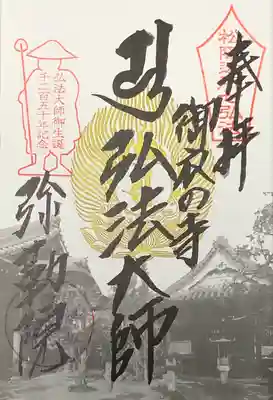 奉拝
御衣の寺
弘法大師
弘法大師御生誕
千二百五十年記念
弥勒院